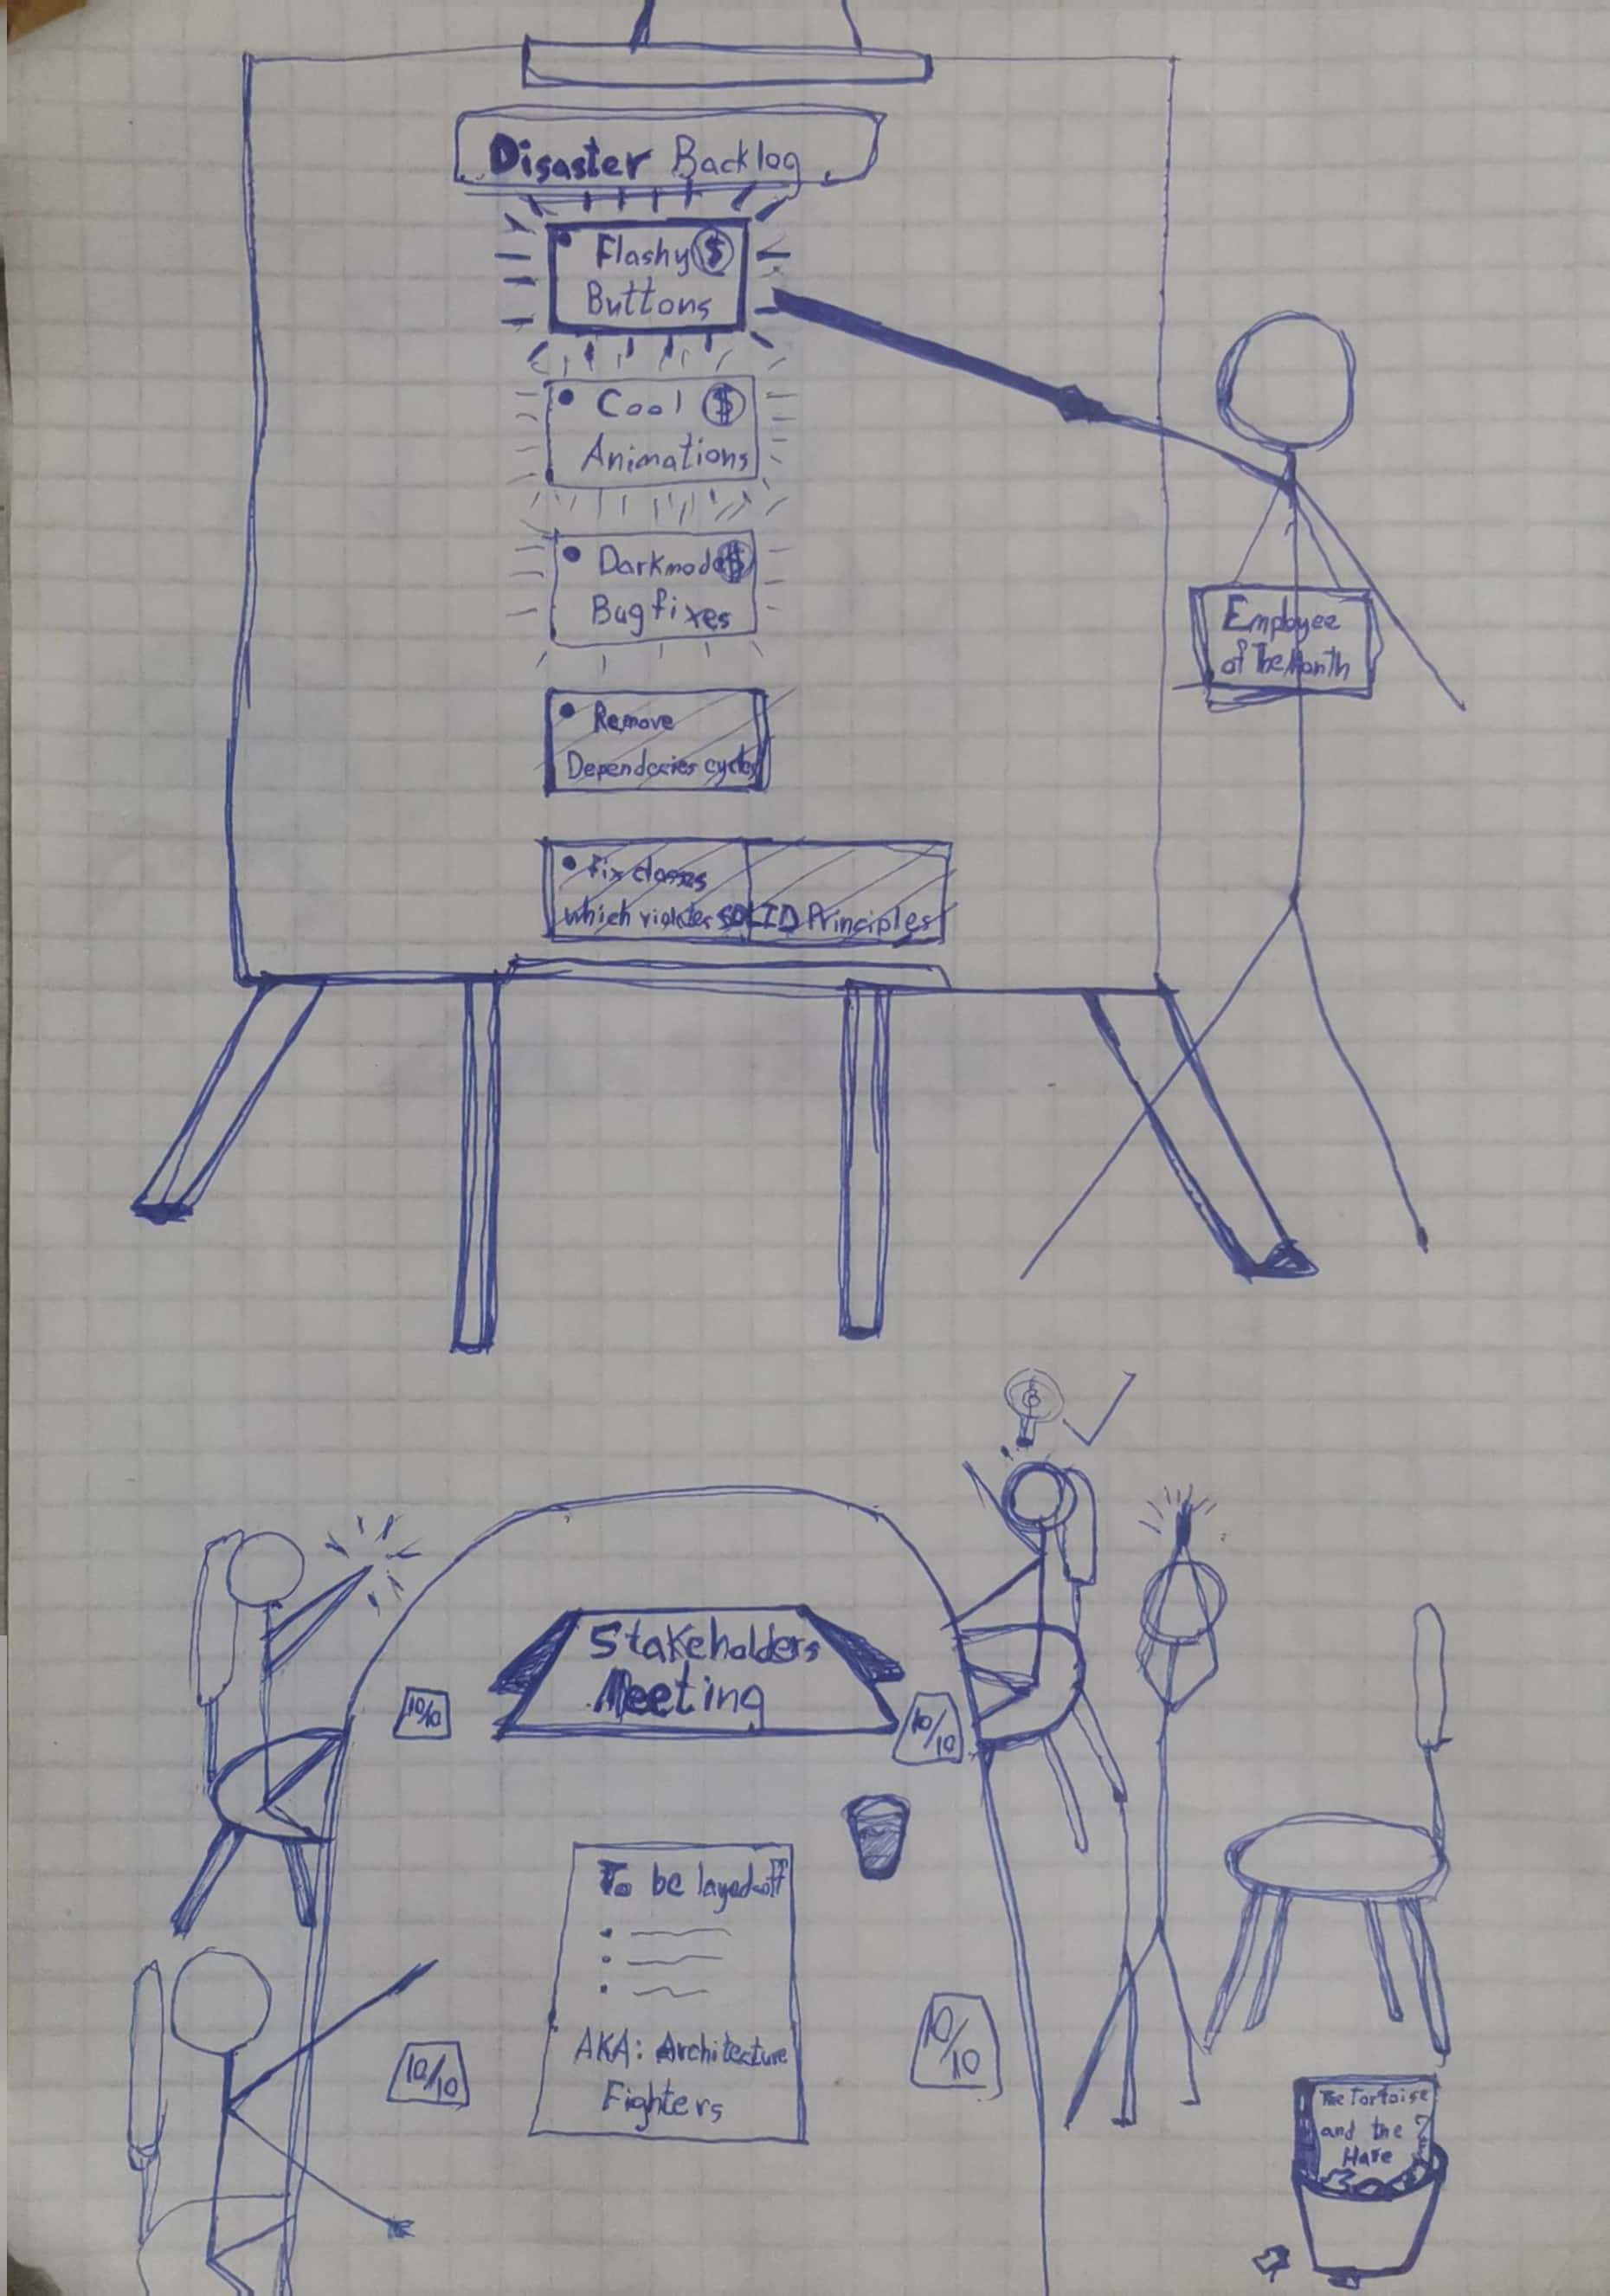 Disaster Backlog
• Flashy $
Buttons
• Cool $
Animations
• Darkmode $
Bugfixes
• Remove
Dependecies cycles
• Fix classes
which violates SOLID Principles
Employee
of The Month
Stakeholders
Meeting
10/10
10/10
To be layed-off
AKA: Architecture
Fighters
10/10
10/10
The Tortoise
and the
Hare